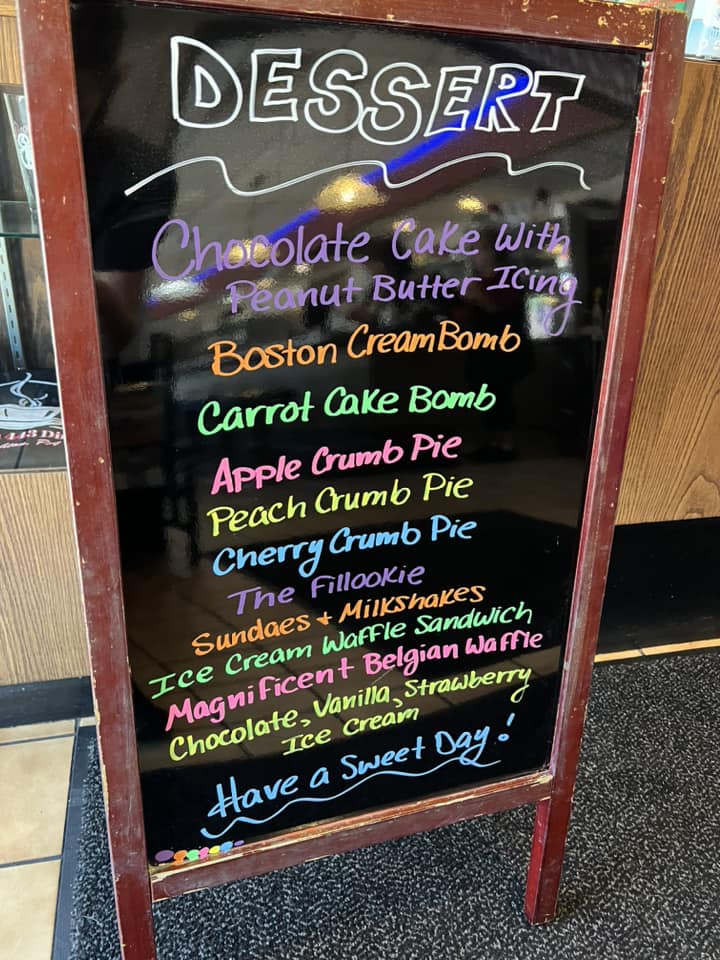 DESSERT
Chocolate Cake With
Peanut Butter Icing
Boston Cream Bomb
Carrot Cake Bomb
Apple Crumb Pie
Peach Crumb Pie
Cherry Crumb Pie
The Fillookie
Sundaes + Milkshakes
Ice Cream Waffle Sandwich
Magnificent Belgian Waffle
Chocolate, Vanilla, Strawberry
Ice Cream
Have a Sweet Day!
443